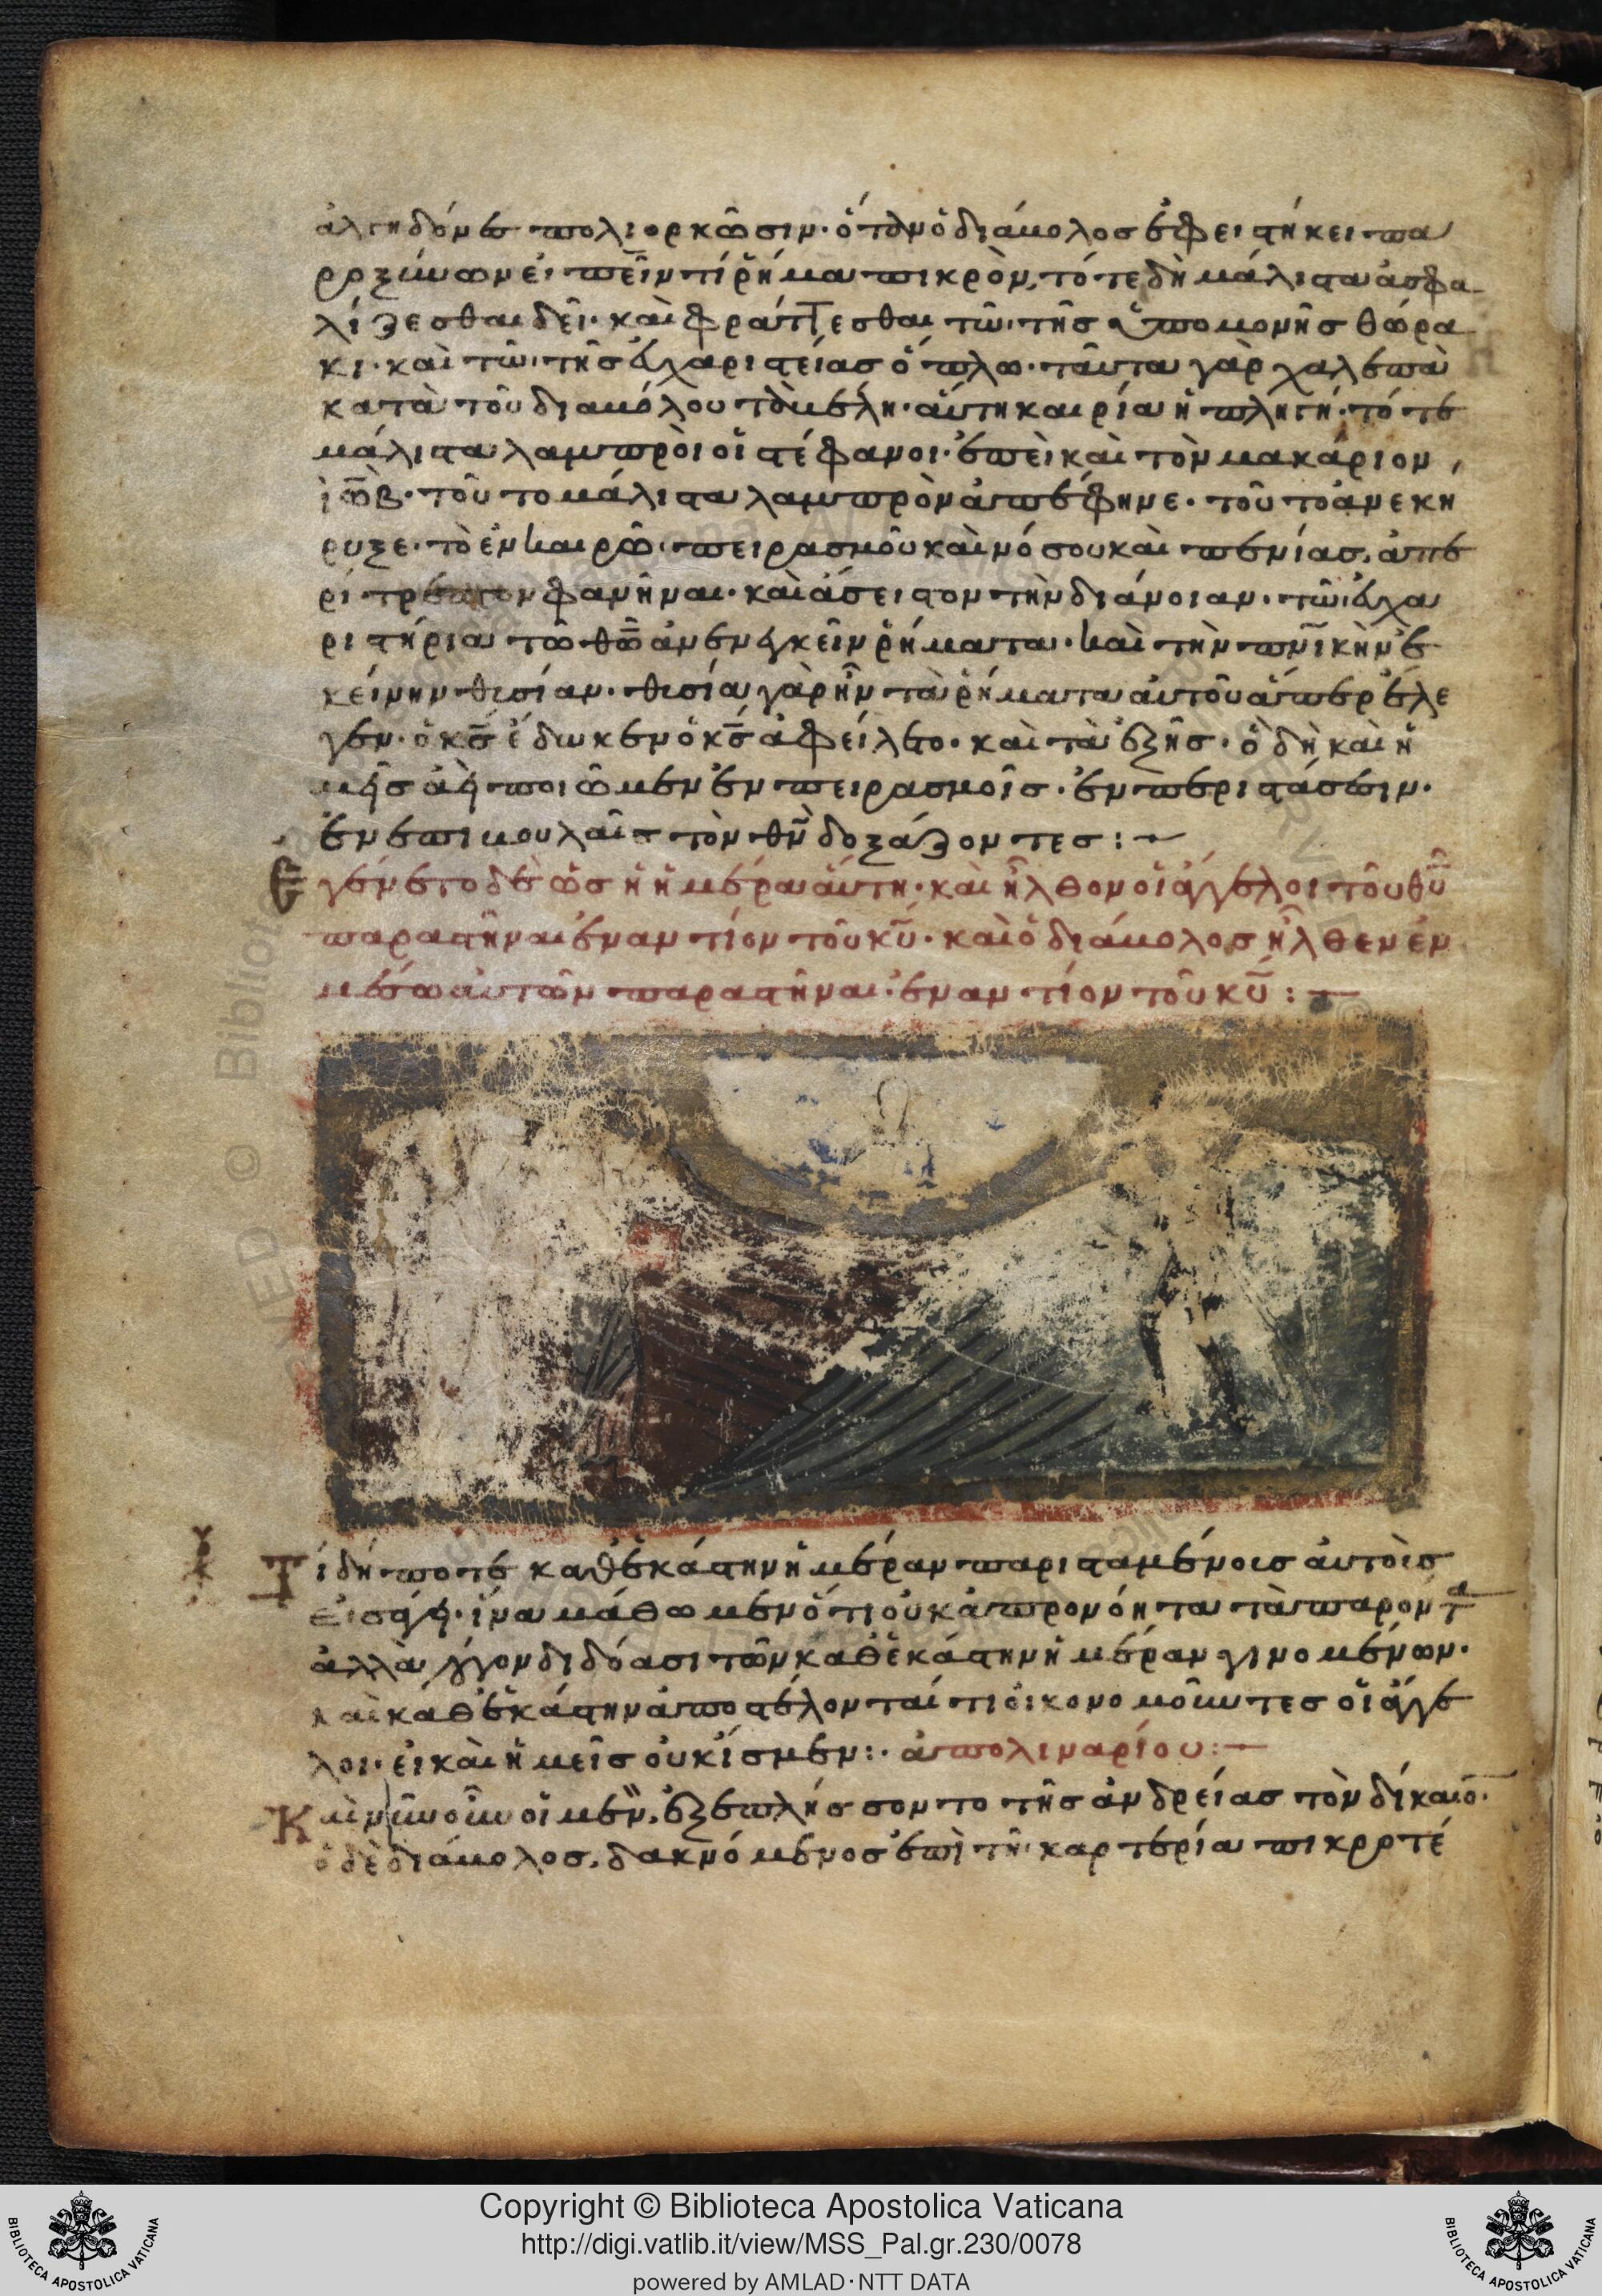 ἀλγηδόνες πολιορκῶσιν· ὅταν ὁ διάβολος ἐφειστήκει πα
ροξύνων εἰπεῖν τί ῥῆμα πικρὸν, τότε δὴ μάλιστα ἀσφα
λίζεσθαι δεῖ· καὶ φράττεσθαι τῶ τῆς ὑπομονῆς θώρα
κι· καὶ τῶ τῆς εὐχαριστείας ὅπλω· ταῦτα γὰρ χαλεπὰ
κατὰ τοῦ διαβόλου τὰ βέλη· αὕτη καιρία ἡ πληγή· τότε
μάλιστα λαμπρὸι οἱ στέφανοι· ἐπεὶ καὶ τὸν μακάριον
ἰὼβ· τοῦτο μάλιστα λαμπρὸν ἀπέφηνε· τοῦτο ἀνεκή
ρυξε· τὸ ἐν καιρῶ πειρασμοῦ καὶ νόσου καὶ πενίας, ἀπε
ρίτρεπτον φανῆναι· καὶ ἄσειστον τὴν διάνοιαν· τῶ εὐχα
ριστήρια τῶ θῶ ἀνενεγκεῖν ῥήματα· καὶ τὴν πνικὴν ἐ
κείνην θυσίαν· θυσία γὰρ ἦν τὰ ῥήματα αὐτοῦ ἅπερ ἔλε
γεν· ὁ κς ἔδωκεν ὁ κς ἀφείλετο· καὶ τὰ ἑξῆς· ὃ δὴ καὶ ἡ
μῆς ἀεὶ ποιῶμεν ἐν πειρασμοῖς· ἐν περιστάσεσιν·
ἐν ἐπιβουλαῖς τὸν θν δοξάζοντες:
Εγένετο δὲ ὡς ἡ ἡμέρα αὕτη· καὶ ἦλθον οἱ ἄγγελοι τοῦ θυ
παραστῆναι ἐναντίον τοῦ κυ· καὶ ὁ διάβολος ἦλθεν ἐν
μέσω αὐτῶν παραστῆναι ἐναντίον τοῦ κυ:
Τί δήποτε καθ' ἑκάστην ἡμέραν παρισταμένοις ἀυτοὶς
εἰσάγει· ἵνα μάθωμεν ὅτι οὐκ ἀπρονόητα τὰ παρόντα
ἀλλὰ λόγον διδόασι τῶν καθ' ἑκάστην ἡμέραν γινομένων·
καὶ καθ' ἑκάστην ἀποστέλονταί τι οἰκονομοῦντες οἱ ἄγγε
λοι· εἰ καὶ ἡμεῖς οὐκ ἴσμεν:· ἀπολιναρίου:
Καὶ νῦν οἱ μὲν, ἐξεπλήσσοντο τῆς ἀνδρείας τὸν δίκαιον·
ὁ δὲ διάβολος, δακνόμενος ἐπὶ τῆ καρτερία πικροτέ
Copyright © Biblioteca Apostolica Vaticana
http://digi.vatlib.it/view/MSS_Pal.gr.230/0078
powered by AMLAD·NTT DATA
BIBLIOTECA APOSTOLICA VATICANA
BIBLIOTECA APOSTOLICA VATICANA